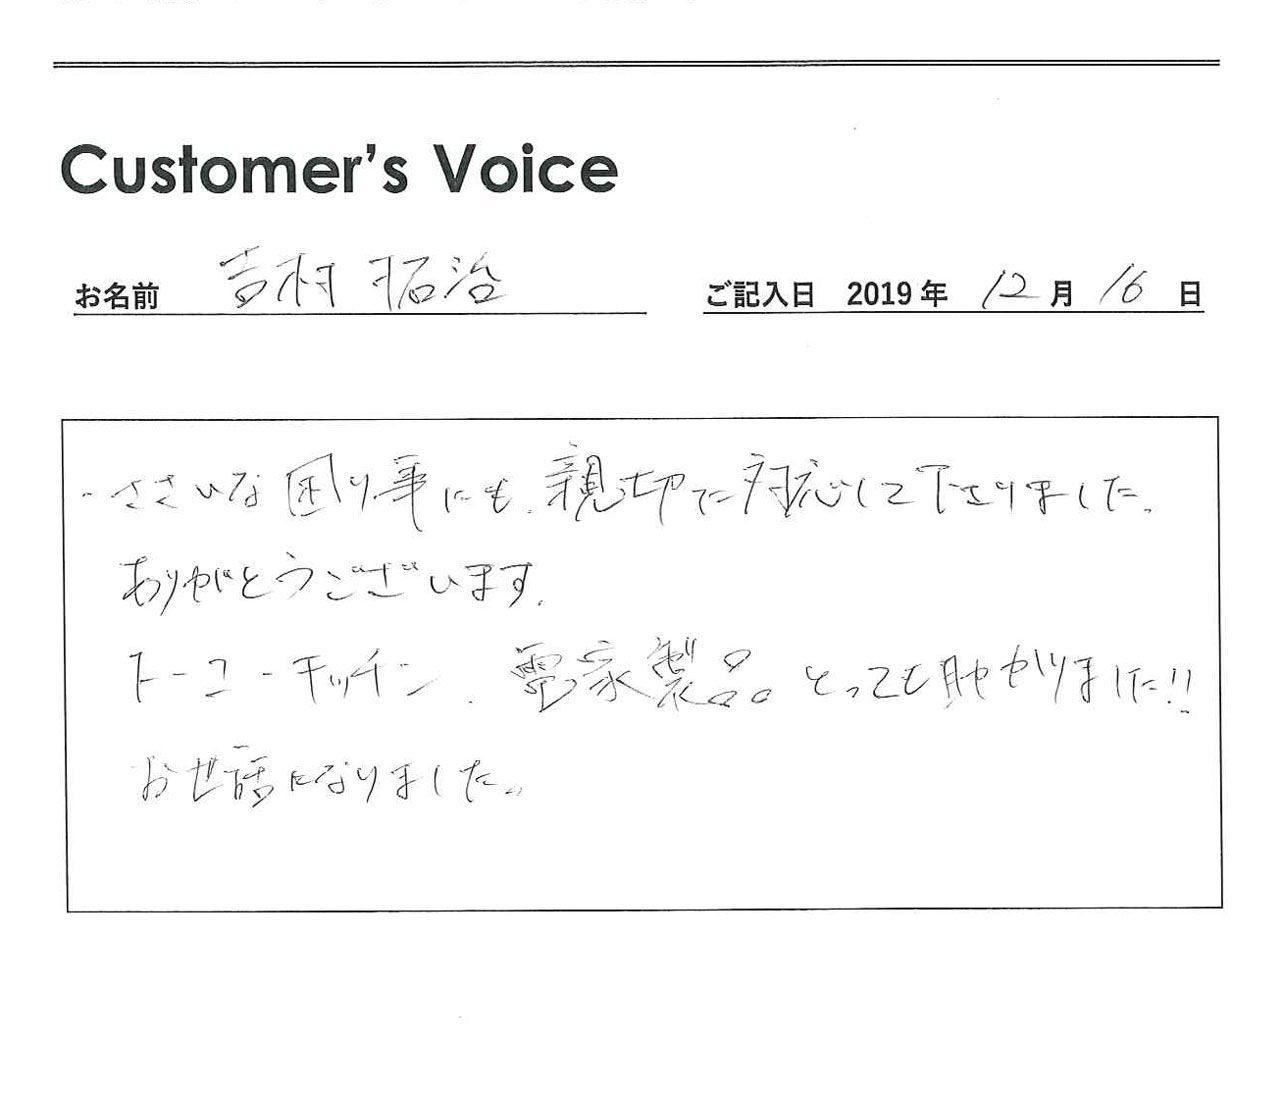 Customer's Voice
お名前 吉村 拓治
ご記入日 2019年 12月 16日
・ささいな困り事にも、親切に対応して下さりました。
ありがとうございます。
トーコーキッチン、電家製品 とっても助かりました!!
お世話になりました。